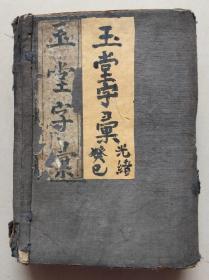 玉堂字彙
光緒
癸巳
玉堂字彙